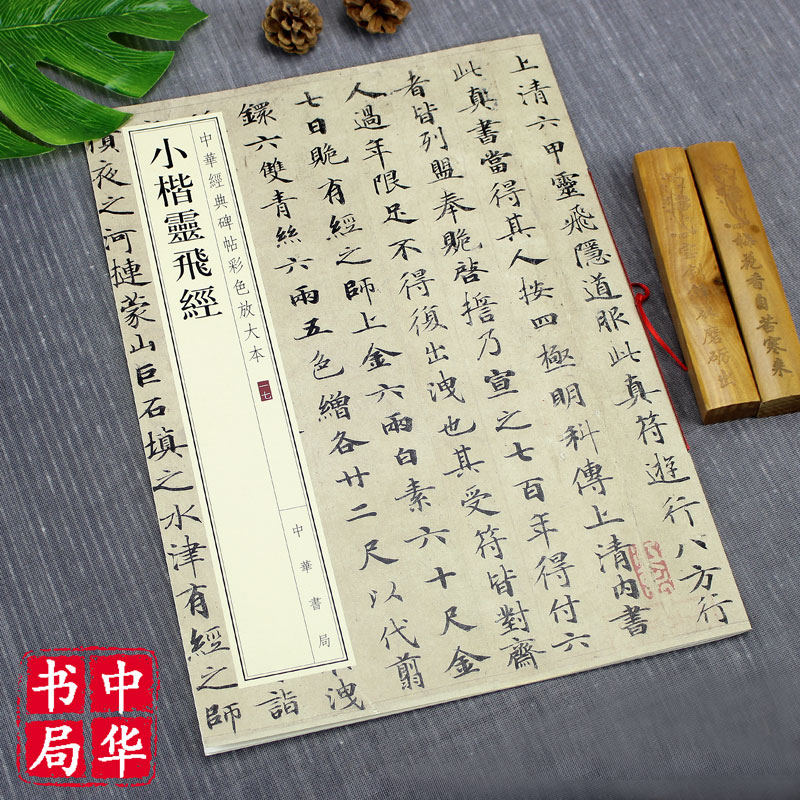 上清六甲靈飛隱道服此真符遊行八方行
此真書當得其人按四極明科傳上清內書
者皆列盟奉貺啓誓乃宣之七百年得付六
人過年限足不得復出洩也其受符皆對齋
七日貺有經之師上金六兩白素六十尺金
鐶六雙青絲六兩五色繒各廿二尺以代剪
洩
詣
中華經典碑帖彩色放大本 一七
小楷靈飛經
中華書局
積夜之河揵蒙山巨石填之水津有經之師
梅花香自苦寒來
磨砺出
中华书局